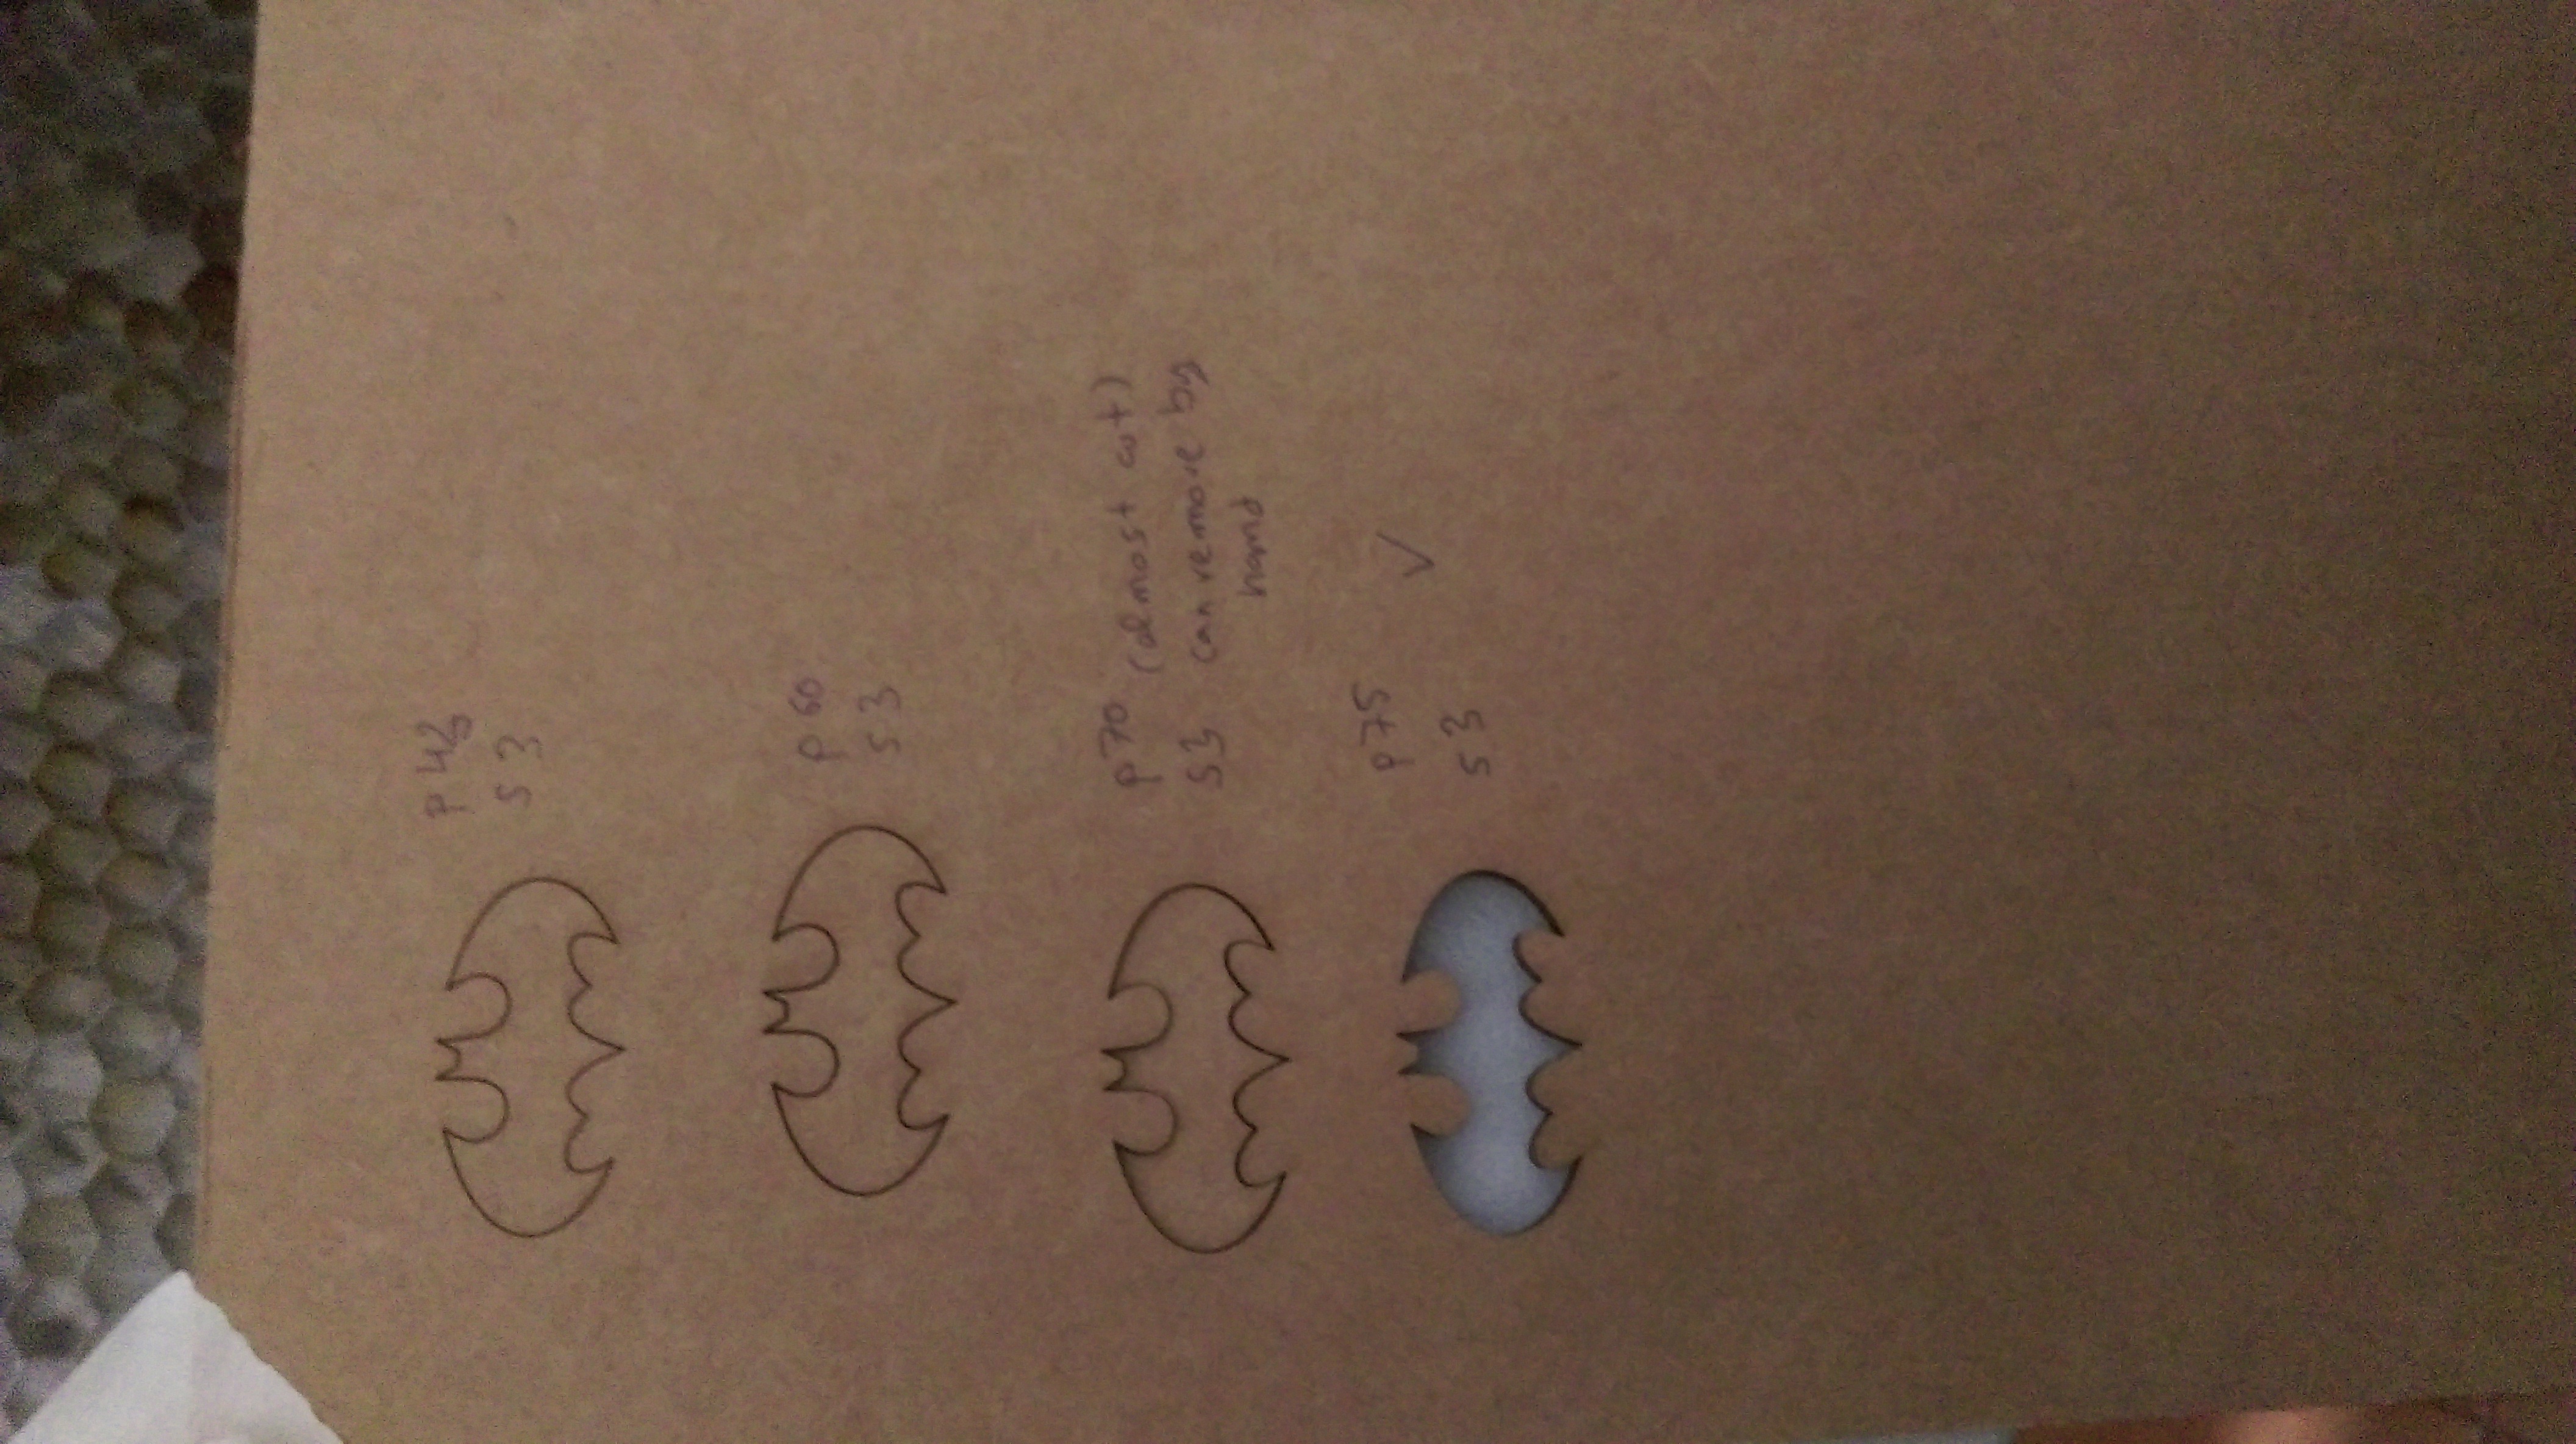 S 3
P 60
S 3
P 70 (almost cut)
S 3 can remove by
hand
P 75 ✓
S 3